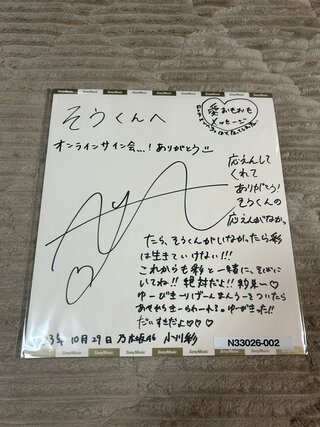 そうくんへ
愛おもおも
メッセージ
オンラインサイン会...! ありがとう
応えんして
くれて
ありがとう!
そうくんの
応えんがなかっ
たら、そうくんがいなかったら彩
は生きていけない!!!
これからも彩と一緒に、そばに
いてね!! 絶対だよ!! 約束ー♡
ゆーびきーりげんまんうーそついたら
あせかきらーわれーる。ゆーびきった!!
だいすきだよ♡♡♡
3年10月29日 乃木坂46 小川彩
N33026-002
Sony Music